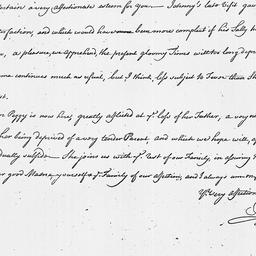 ntain a very affectionate esteem for you Johnny's late visit gave
sfaction, and which would have been more compleat if his Lady h
, a pleasure, we apprehend, the present gloomy Times will too long depri
me continues much as usual, but I think, less subject to Favor than She
st.
n Peggy is now here, greatly afflicted at yᵉ loss of her Father, a very
her being deprived of a very tender Parent, and which we hope will,
dually subside. She joins us with yᵉ rest of our Family, in assuring
r good Mama, yourself & yᵉ Family of our affection, and I always am
Yʳ Very affection